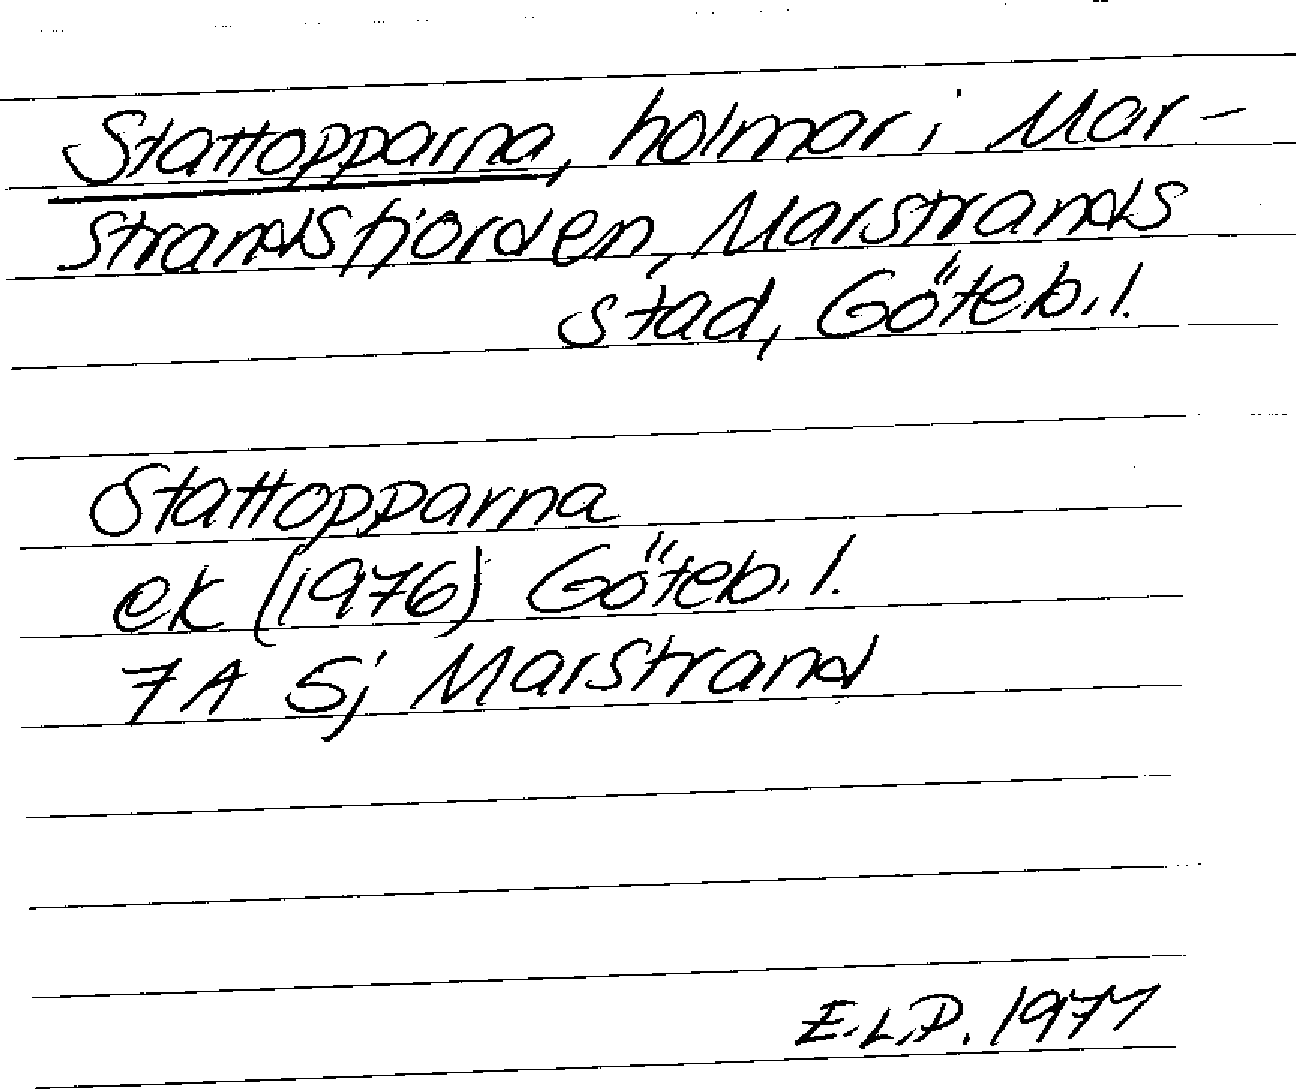 Stattopparna, holmar i Mar-
strandsfjorden, Marstrands
stad, Göteb. l.
Stattopparna
ek (1976) Göteb. l.
7A 5j Marstrand
E.L.P. 1977